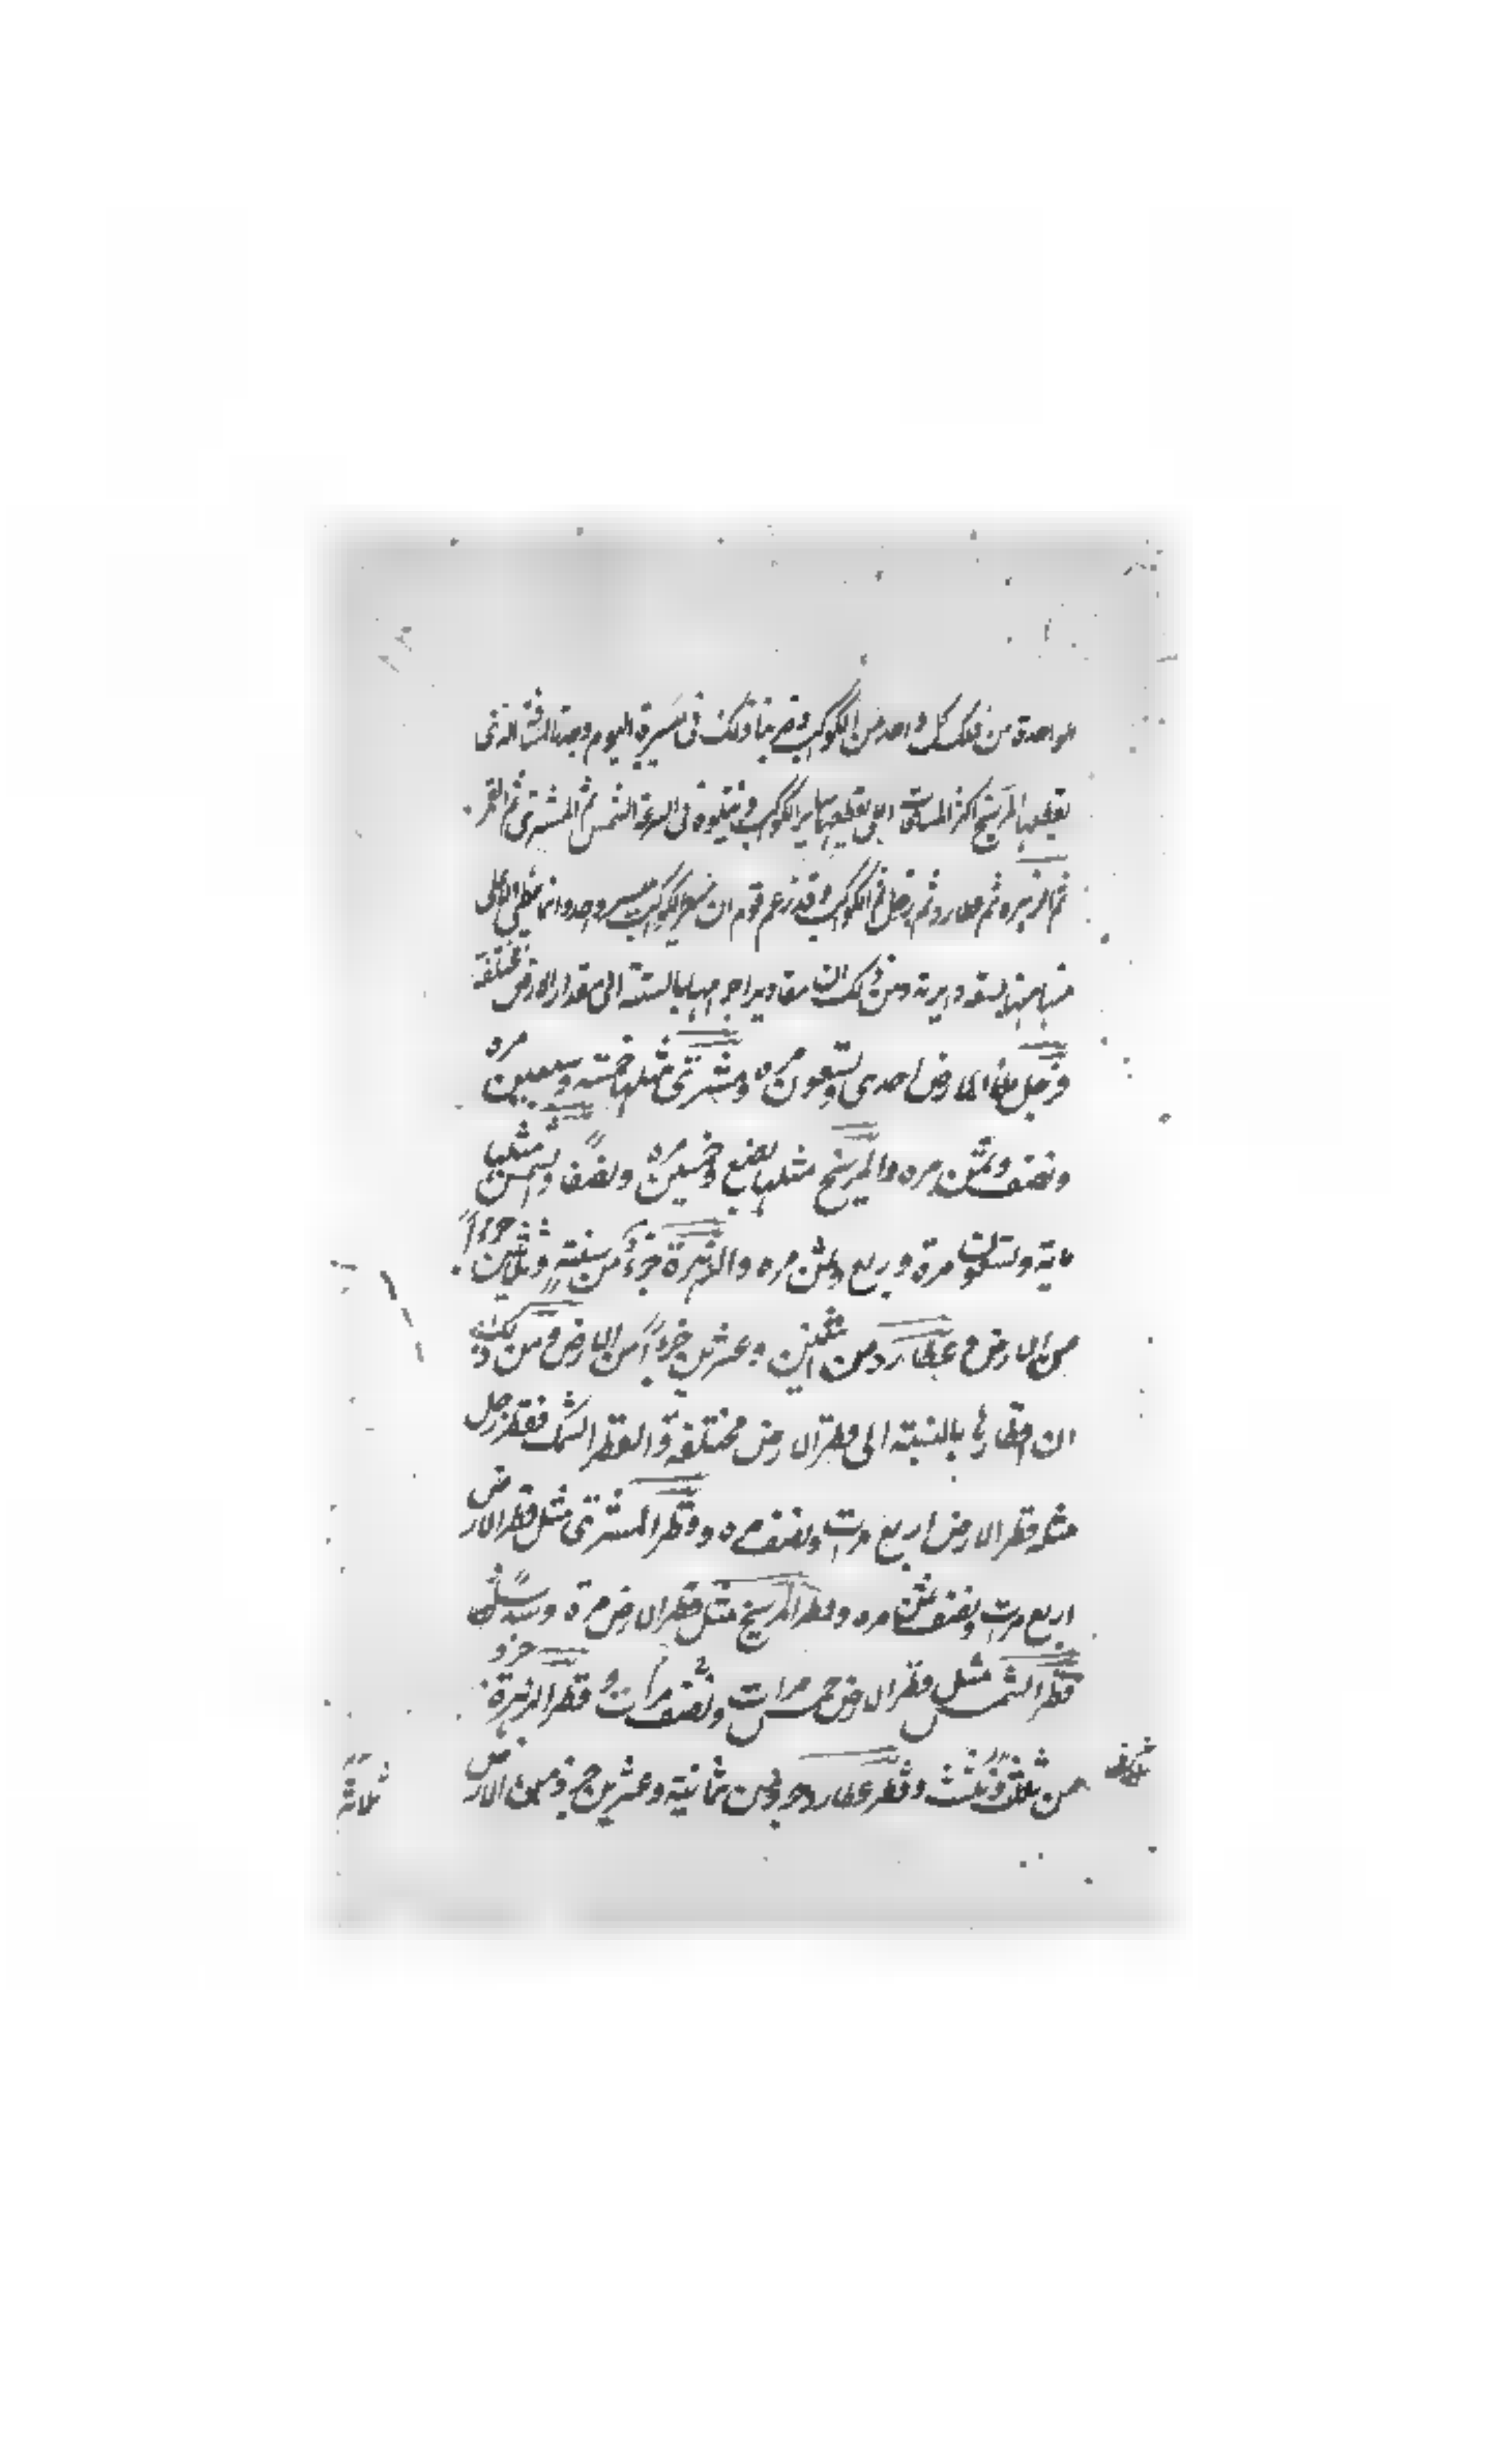 واحدة من فلك كل واحد من الكواكب وضربنا ذلك فى مسيره اليوم وجدنا المسافة التى
يقطعها المريخ اكثر المسافات التى يقطعها ساير الكواكب ويتلوه فى السرعة الشمس ثم المشترى ثم القمر
ثم الزهره ثم عطارد ثم زحل ثم الكواكب وقد زعم قوم ان سير الكواكب مسير واحد وانما
ومن ذلك ان مقادير اجرامها بالنسبة الى مقدار الارض مختلفة
فزحل مثل الارض احدى وتسعون مره ومشترى مثلها خمسة وسبعين مره
ونصف وثمن مره والمريخ مثلها بضع وخمسين مرة ونصفا وشمس مثلها
ماية وستون مرة وربع وثمن مره والزهرة جزء من ستة وثلثين جزءا
من الارض وعطارد من اثنين وعشرين جزءا من الارض ومن ذلك
ان اقطارها بالنسبة الى قطر الارض مختلفة والقطر السمك فقطر زحل
مثل قطر الارض اربع مرات ونصف مره وقطر المشترى مثل قطر الارض
اربع مرات ونصف ثمن مره وقطر المريخ مثل قطر الارض مرة وسدس
قطر الشمس مثل قطر الارض خمس مرات ونصف مرات وقطر الزهرة جزو
من ثلثة وثلث وقطر عطارد جزو من ثمانية وعشرين جزو من الارض
ثلاثة